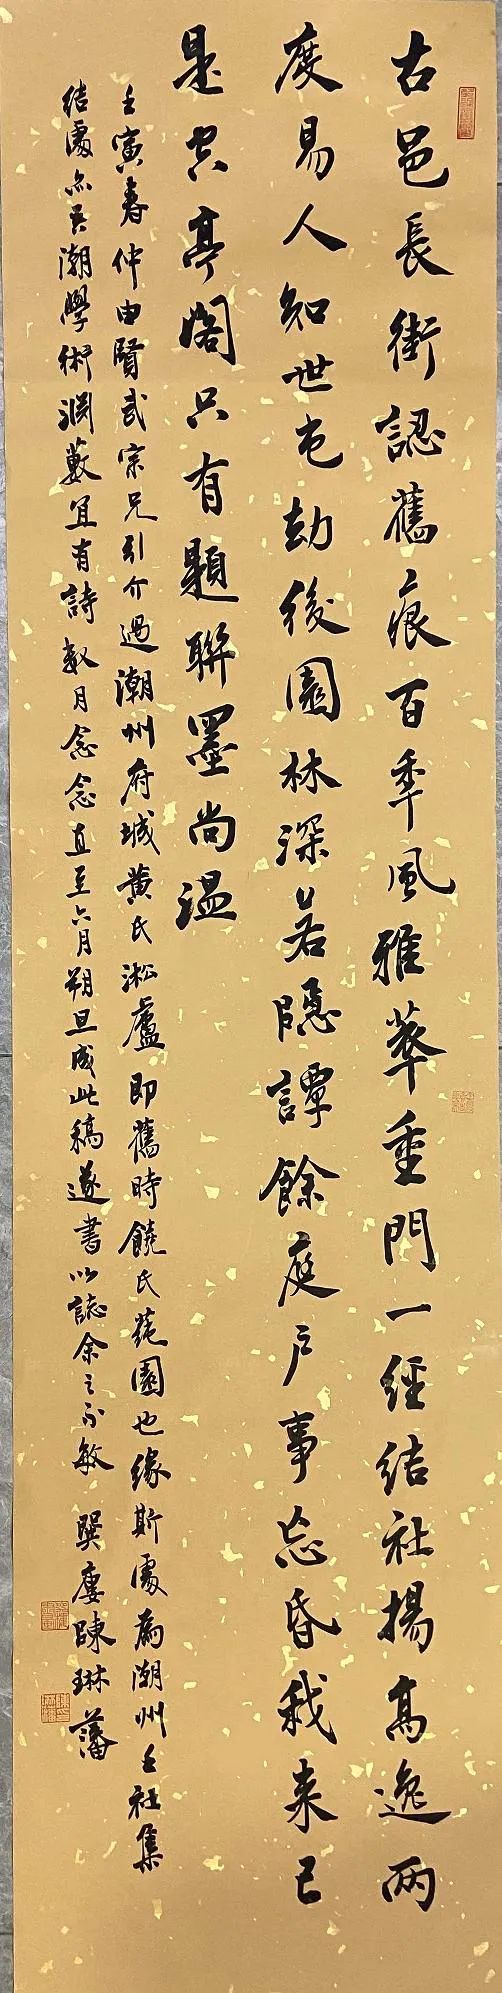 古邑長街認舊痕百年風雅萃重門一經結社揚高逸兩
度易人知世屯劫後園林深若隱譚餘庭戶事忘昏我来已
是空亭閣只有題聯墨尚溫
壬寅春仲由賢武宗兄引介過潮州府城黃氏淞廬即舊時饒氏蒓園也緣斯處為潮州壬社集
結處亦吾潮學術淵藪宜有詩数月念念直至六月朔旦成此稿遂書以誌余之不敏 巽廔陳琳藩